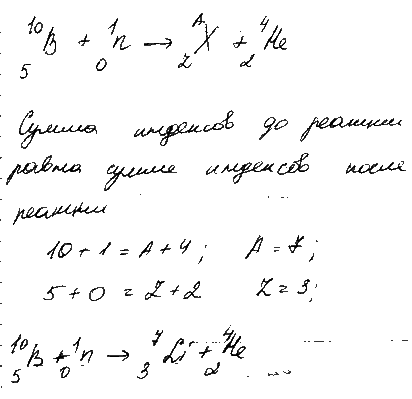 ¹⁰₅B + ¹₀n → ᴬ_ZX + ⁴₂He
Сумма индексов до реакции
равна сумме индексов после
реакции
10 + 1 = A + 4 ; A = 7 ;
5 + 0 = Z + 2 Z = 3 ;
¹⁰₅B + ¹₀n → ⁷₃Li + ⁴₂He